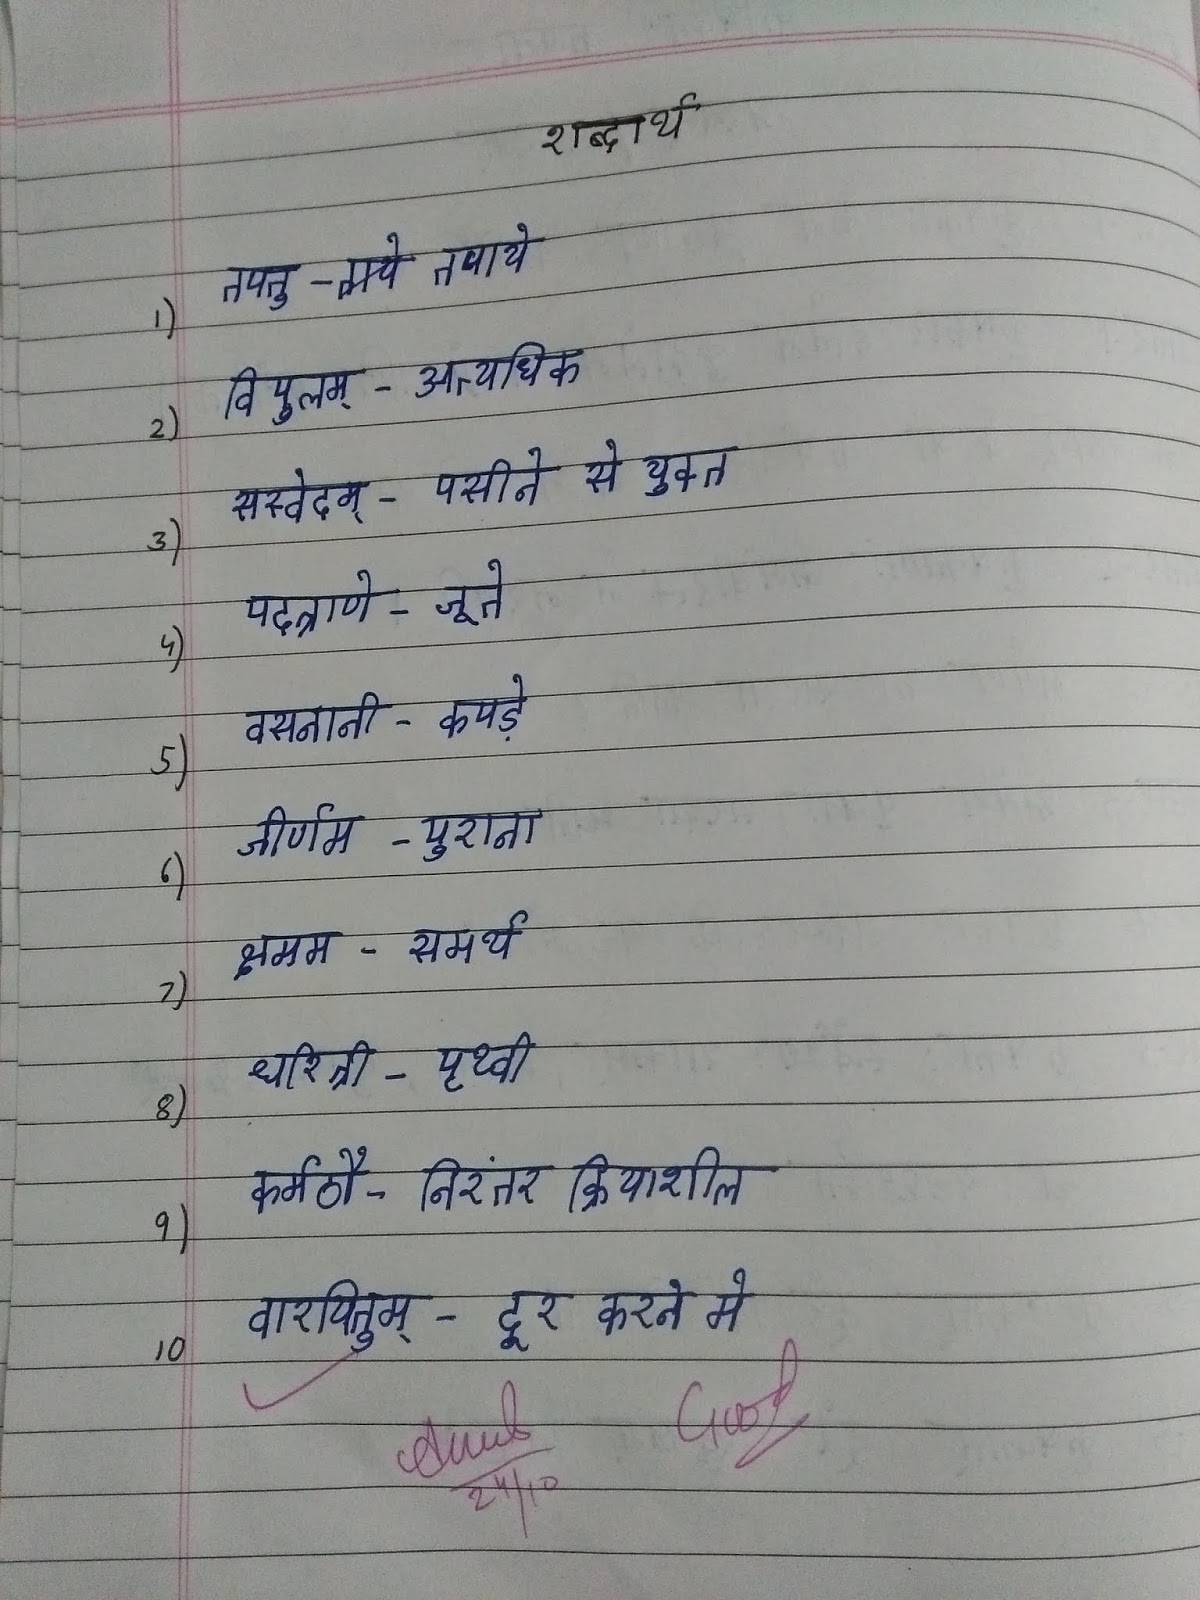 शब्दार्थ
1) तपतु - तपाये
2) विपुलम् - अत्यधिक
3) सस्वेदम् - पसीने से युक्त
4) पदत्राणे - जूते
5) वसनानी - कपड़े
6) जीर्णम - पुराना
7) क्षमम - समर्थ
8) धरित्री - पृथ्वी
9) कर्मठौ - निरंतर क्रियाशील
10 वारयितुम् - दूर करने मे
Good
24/10